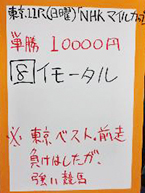 東京11R(日曜)NHKマイルカップ
単勝 10000円
8 イモータル
※ 東京ベスト、前走
負けはしたが、
強い競馬